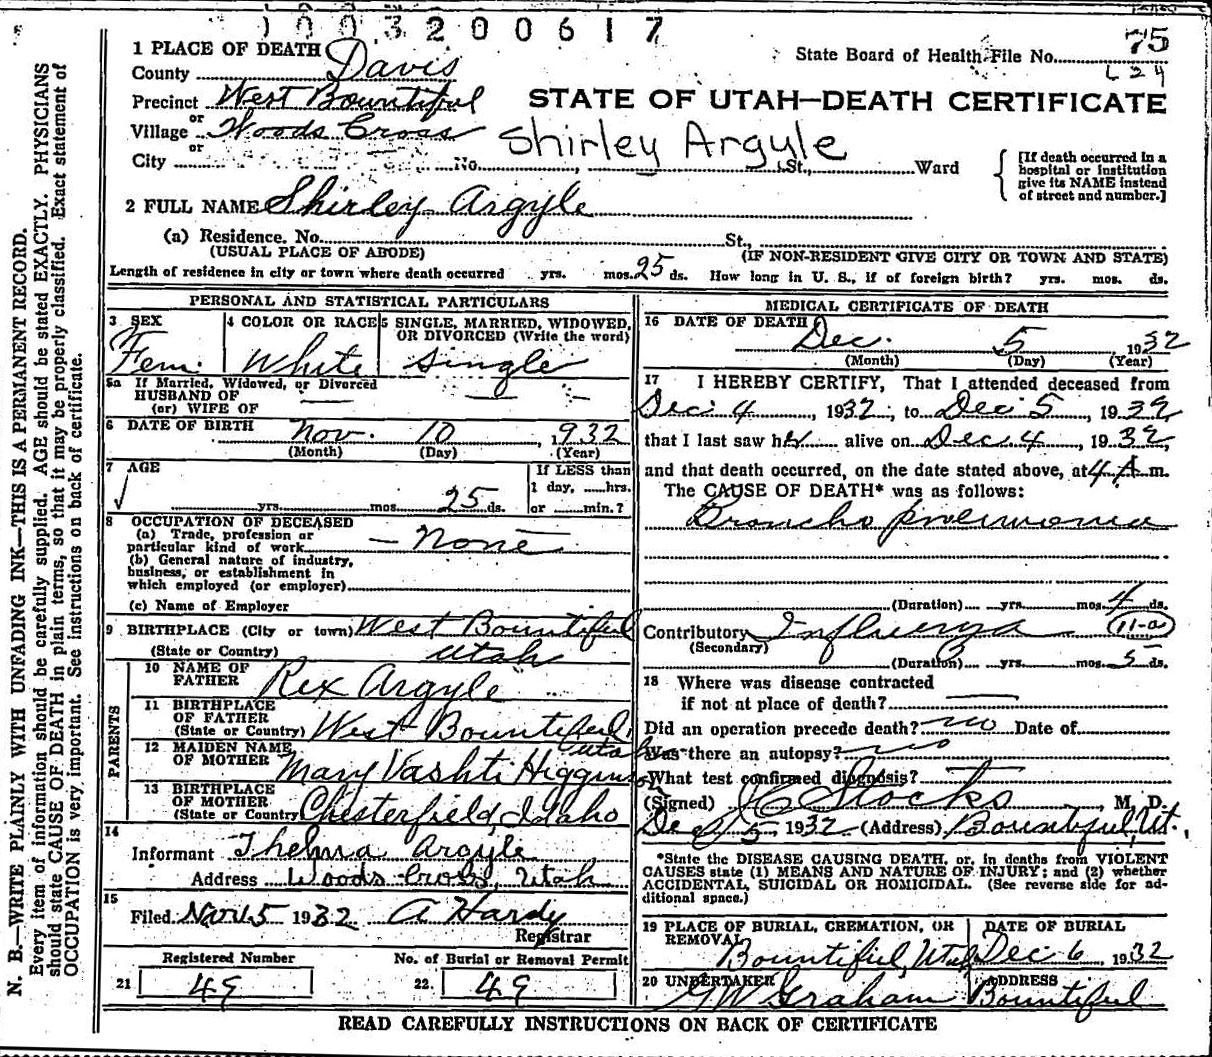 1003200617
75
State Board of Health File No.
L 24
1 PLACE OF DEATH
County Davis
Precinct West Bountiful
or
Village Woods Cross
or
City No. St., Ward
STATE OF UTAH—DEATH CERTIFICATE
Shirley Argyle
[If death occurred in a
hospital or institution
give its NAME instead
of street and number.]
2 FULL NAME Shirley Argyle
(a) Residence. No. St.,
(USUAL PLACE OF ABODE) (IF NON-RESIDENT GIVE CITY OR TOWN AND STATE)
Length of residence in city or town where death occurred yrs. mos. 25 ds. How long in U. S., if of foreign birth? yrs. mos. ds.
PERSONAL AND STATISTICAL PARTICULARS
3 SEX 4 COLOR OR RACE 5 SINGLE, MARRIED, WIDOWED,
OR DIVORCED (Write the word)
Fem. White Single
5a If Married, Widowed, or Divorced
HUSBAND OF
(or) WIFE OF
6 DATE OF BIRTH Nov. 10, 1932
(Month) (Day) (Year)
7 AGE If LESS than
1 day, ......hrs.
yrs. mos. 25 ds. or ......min.?
8 OCCUPATION OF DECEASED
(a) Trade, profession or
particular kind of work — None
(b) General nature of industry,
business, or establishment in
which employed (or employer)
(c) Name of Employer
9 BIRTHPLACE (City or town) West Bountiful
(State or Country) Utah
PARENTS
10 NAME OF
FATHER Rex Argyle
11 BIRTHPLACE
OF FATHER
(State or Country) West Bountiful, Utah
12 MAIDEN NAME
OF MOTHER Mary Vashti Higginson
13 BIRTHPLACE
OF MOTHER
(State or Country) Chesterfield, Idaho
14
Informant Thelma Argyle
Address Woods Cross, Utah
15
Filed Nov 5 1932 A Hardy
Registrar
Registered Number No. of Burial or Removal Permit
21 49 22. 49
MEDICAL CERTIFICATE OF DEATH
16 DATE OF DEATH Dec. 5 1932
(Month) (Day) (Year)
17 I HEREBY CERTIFY, That I attended deceased from
Dec 4, 1932, to Dec 5, 1932
that I last saw her alive on Dec 4, 1932,
and that death occurred, on the date stated above, at 4 A m.
The CAUSE OF DEATH* was as follows:
Broncho pneumonia
(Duration) yrs. mos. 4 ds.
Contributory Influenza 11-a
(Secondary)
(Duration) yrs. mos. 5 ds.
18 Where was disease contracted
if not at place of death?
Did an operation precede death? no Date of
Was there an autopsy? no
What test confirmed diagnosis?
(Signed) J C Stocks, M. D.
Dec 5 1932 (Address) Bountiful, Ut.,
*State the DISEASE CAUSING DEATH, or, in deaths from VIOLENT
CAUSES state (1) MEANS AND NATURE OF INJURY; and (2) whether
ACCIDENTAL, SUICIDAL OR HOMICIDAL. (See reverse side for ad-
ditional space.)
19 PLACE OF BURIAL, CREMATION, OR
REMOVAL
Bountiful, Utah
DATE OF BURIAL
Dec 6, 1932
20 UNDERTAKER
GW Graham
ADDRESS
Bountiful
READ CAREFULLY INSTRUCTIONS ON BACK OF CERTIFICATE
N. B.—WRITE PLAINLY WITH UNFADING INK—THIS IS A PERMANENT RECORD.
Every item of information should be carefully supplied. AGE should be stated EXACTLY. PHYSICIANS
should state CAUSE OF DEATH in plain terms, so that it may be properly classified. Exact statement of
OCCUPATION is very important. See instructions on back of certificate.